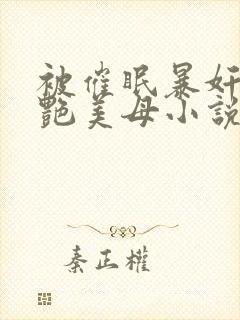 被催眠暴奸
艷美母小說
秦正權